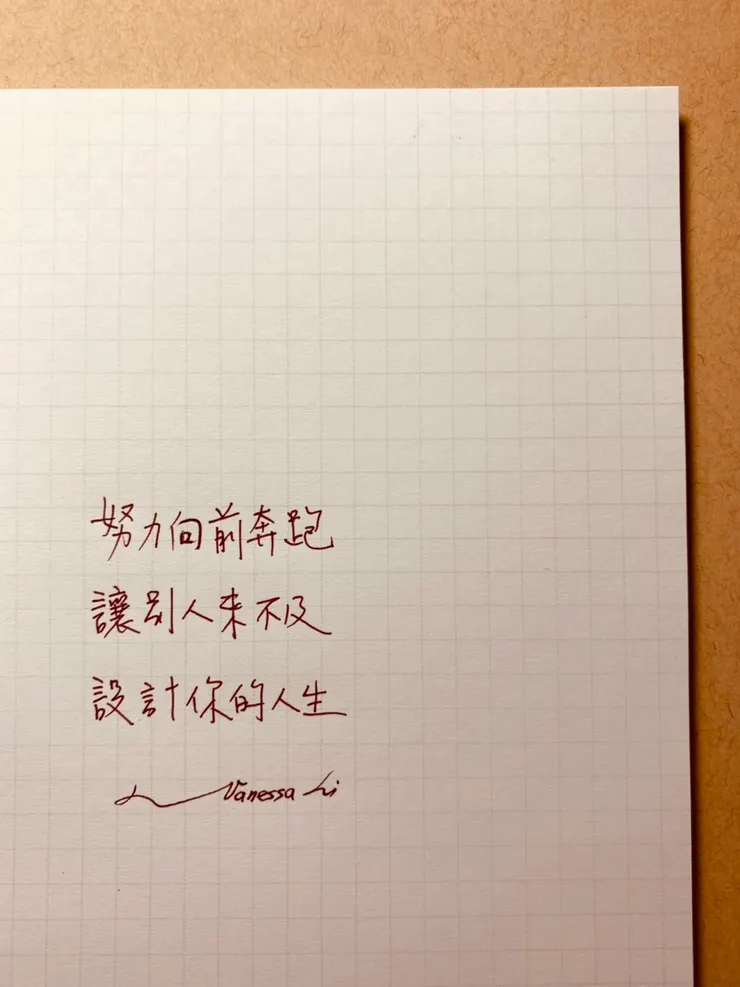 努力向前奔跑
讓別人來不及
設計你的人生
Vanessa Li